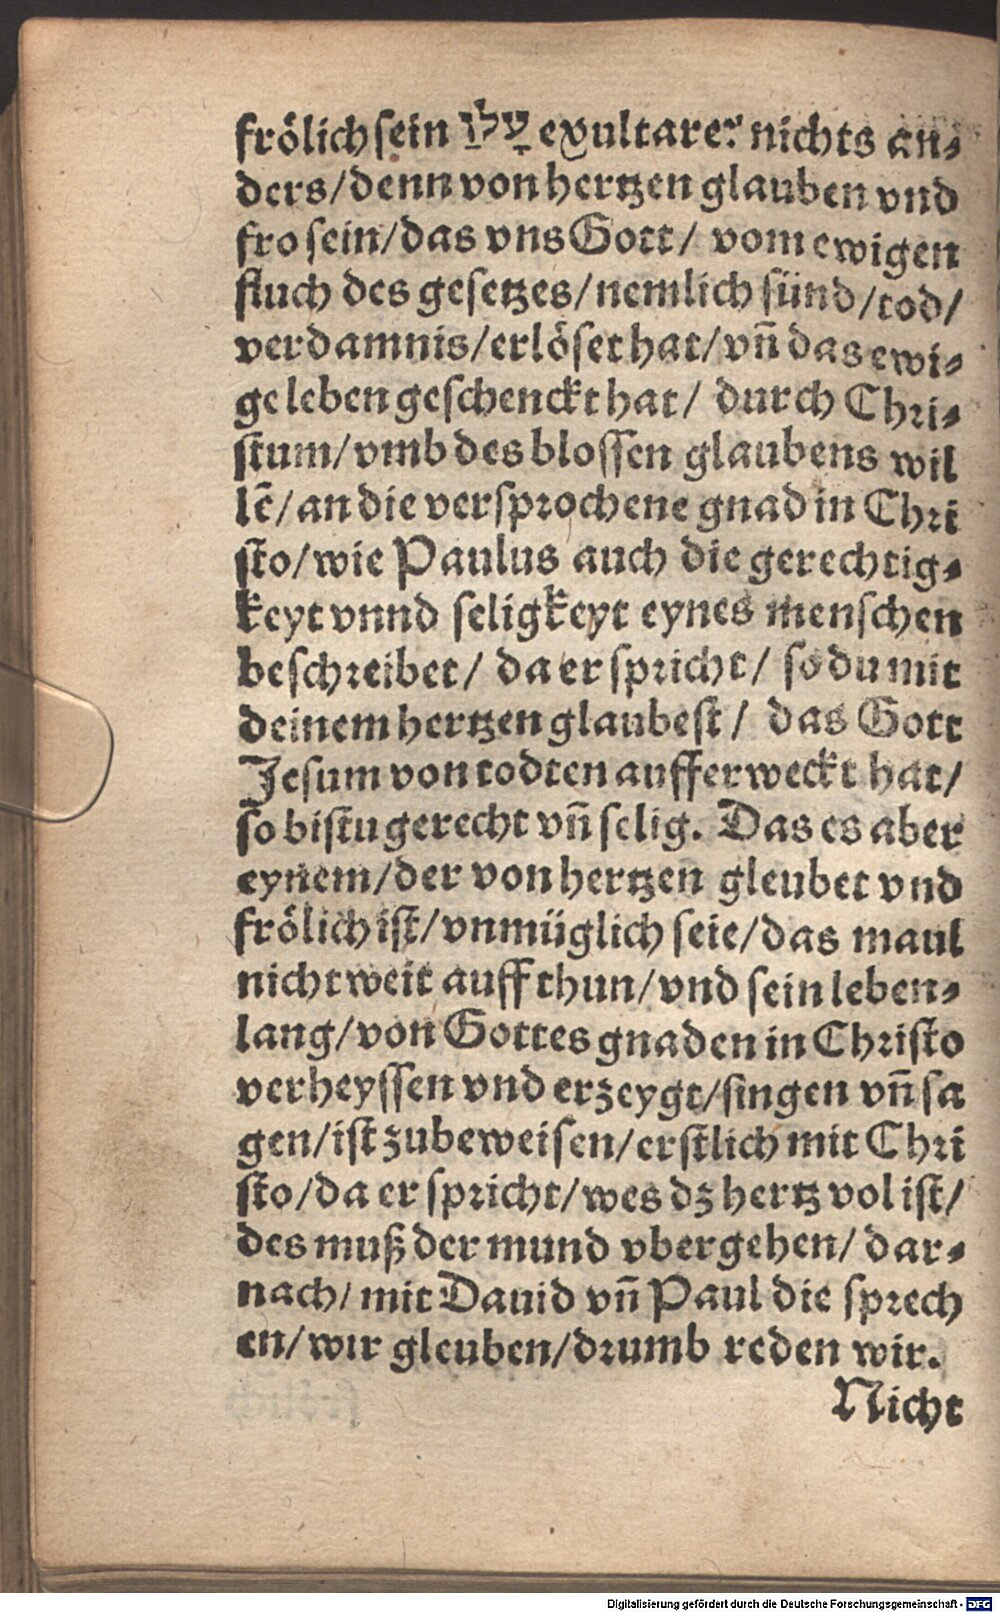 frölich ſein עָלַץ exultare? nichts an⸗
ders/denn von hertzen glauben vnd
fro ſein/das vns Gott/ vom ewigen
fluch des geſetzes/nemlich ſünd/tod/
verdamnis/erlöſet hat/vñ das ewi⸗
ge leben geſchenckt hat/ durch Chri⸗
ſtum/vmb des bloſſen glaubens wil
lē/an die verſprochene gnad in Chri
ſto/wie Paulus auch die gerechtig⸗
keyt vnnd ſeligkeyt eynes menſchen
beſchreibet/ da er ſpricht/ ſo du mit
deinem hertzen glaubeſt/ das Gott
Jeſum von todten aufferweckt hat/
ſo biſtu gerecht vñ ſelig. Das es aber
eynem/der von hertzen gleubet vnd
frölich iſt/vnmüglich ſeie/das maul
nicht weit auff thun/vnd ſein leben⸗
lang/von Gottes gnaden in Chriſto
verheyſſen vnd erzeygt/ſingen vñ ſa
gen/iſt zubeweiſen/erſtlich mit Chri
ſto/da er ſpricht/wes dz hertz vol iſt/
des muß der mund vbergehen/ dar⸗
nach/ mit Dauid vñ Paul die ſprech
en/wir gleuben/drumb reden wir.
Nicht
Digitalisierung gefördert durch die Deutsche Forschungsgemeinschaft - DFG